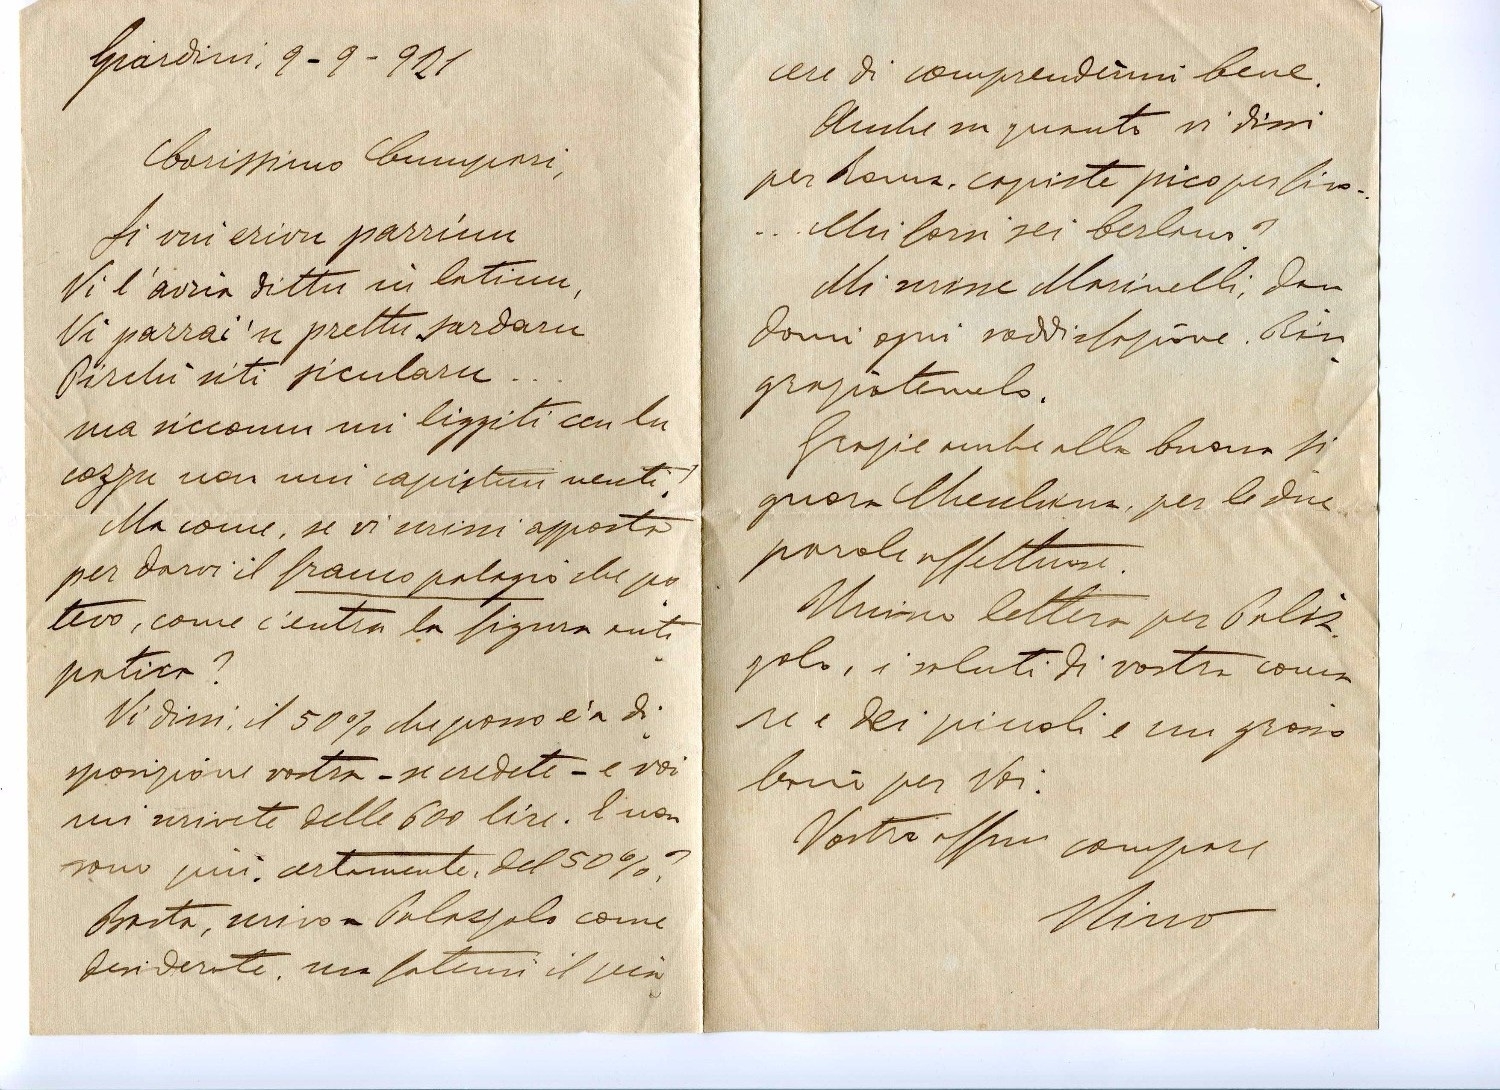 Giardini, 9-9-921
Carissimo Cumpari,
Si vui erivu parrinu
Vi l'avria dittu in latinu,
Vi parrai 'n prettu sardaru
Pirchì siti sicularu ...
ma siccomu mi liggiti cu lu
cozzu non mi capistivu nenti!
Ma come, se vi scrissi apposta
per darvi il franco palagio che po
tevo, come c'entra la figura anti
patica?
Vi dissi, il 50% che posso è a di
sposizione vostra - se credete - e voi
mi scrivete delle 600 lire. E non
sono più, certamente, del 50%?
Basta, scrivo a Palazzolo come
desiderate, ma fatemi il pia
cere di comprendermi bene.
Anche in quanto vi dissi
per Roma, capiste pico per fico.
... Mi forsi sei
Mi scrisse Marinelli, dan
domi ogni soddisfazione. Rin
graziatemelo.
Grazie anche alla buona si
gnora per le due
parole affettuose.
Unisco lettera per Palaz
zolo, i saluti di vostra coma
re e dei piccoli e un grosso
bacio per Voi.
Vostro affmo compare
Nino